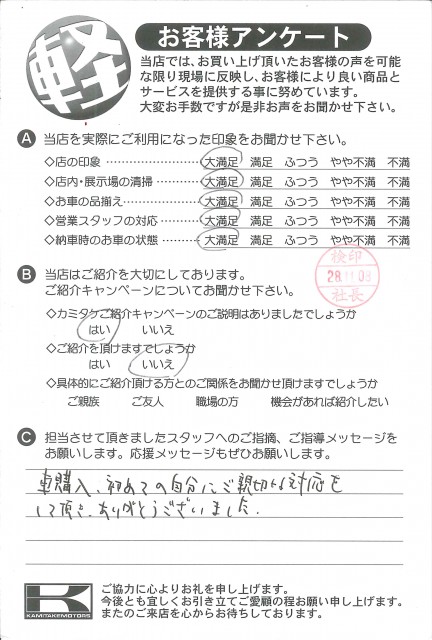 軽
お客様アンケート
当店では、お買い上げ頂いたお客様の声を可能
な限り現場に反映し、お客様により良い商品と
サービスを提供する事に努めています。
大変お手数ですが是非お声をお聞かせ下さい。
A 当店を実際にご利用になった印象をお聞かせ下さい。
◇店の印象 ………………… 大満足 満足 ふつう やや不満 不満
◇店内・展示場の清掃 ……… 大満足 満足 ふつう やや不満 不満
◇お車の品揃え …………… 大満足 満足 ふつう やや不満 不満
◇営業スタッフの対応 ……… 大満足 満足 ふつう やや不満 不満
◇納車時のお車の状態 ……… 大満足 満足 ふつう やや不満 不満
検印
28.11.08
社長
B 当店はご紹介を大切にしております。
ご紹介キャンペーンについてお聞かせ下さい。
◇カミタケご紹介キャンペーンのご説明はありましたでしょうか
はい いいえ
◇ご紹介を頂けますでしょうか
はい いいえ
◇具体的にご紹介頂ける方とのご関係をお聞かせ頂けますでしょうか
ご親族 ご友人 職場の方 機会があれば紹介したい
C 担当させて頂きましたスタッフへのご指摘、ご指導メッセージを
お願いします。応援メッセージもぜひお願いします。
車購入、初めての自分にご親切な対応を
して頂き、ありがとうございました。
K
KAMITAKEMOTORS
ご協力に心よりお礼を申し上げます。
今後とも宜しくお引き立てご愛顧の程お願い申し上げます。
またのご来店を心からお待ちしております。